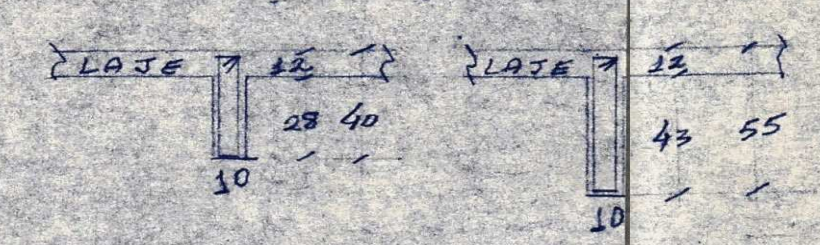 LAJE 12
28 40
10
LAJE 12
43 55
10